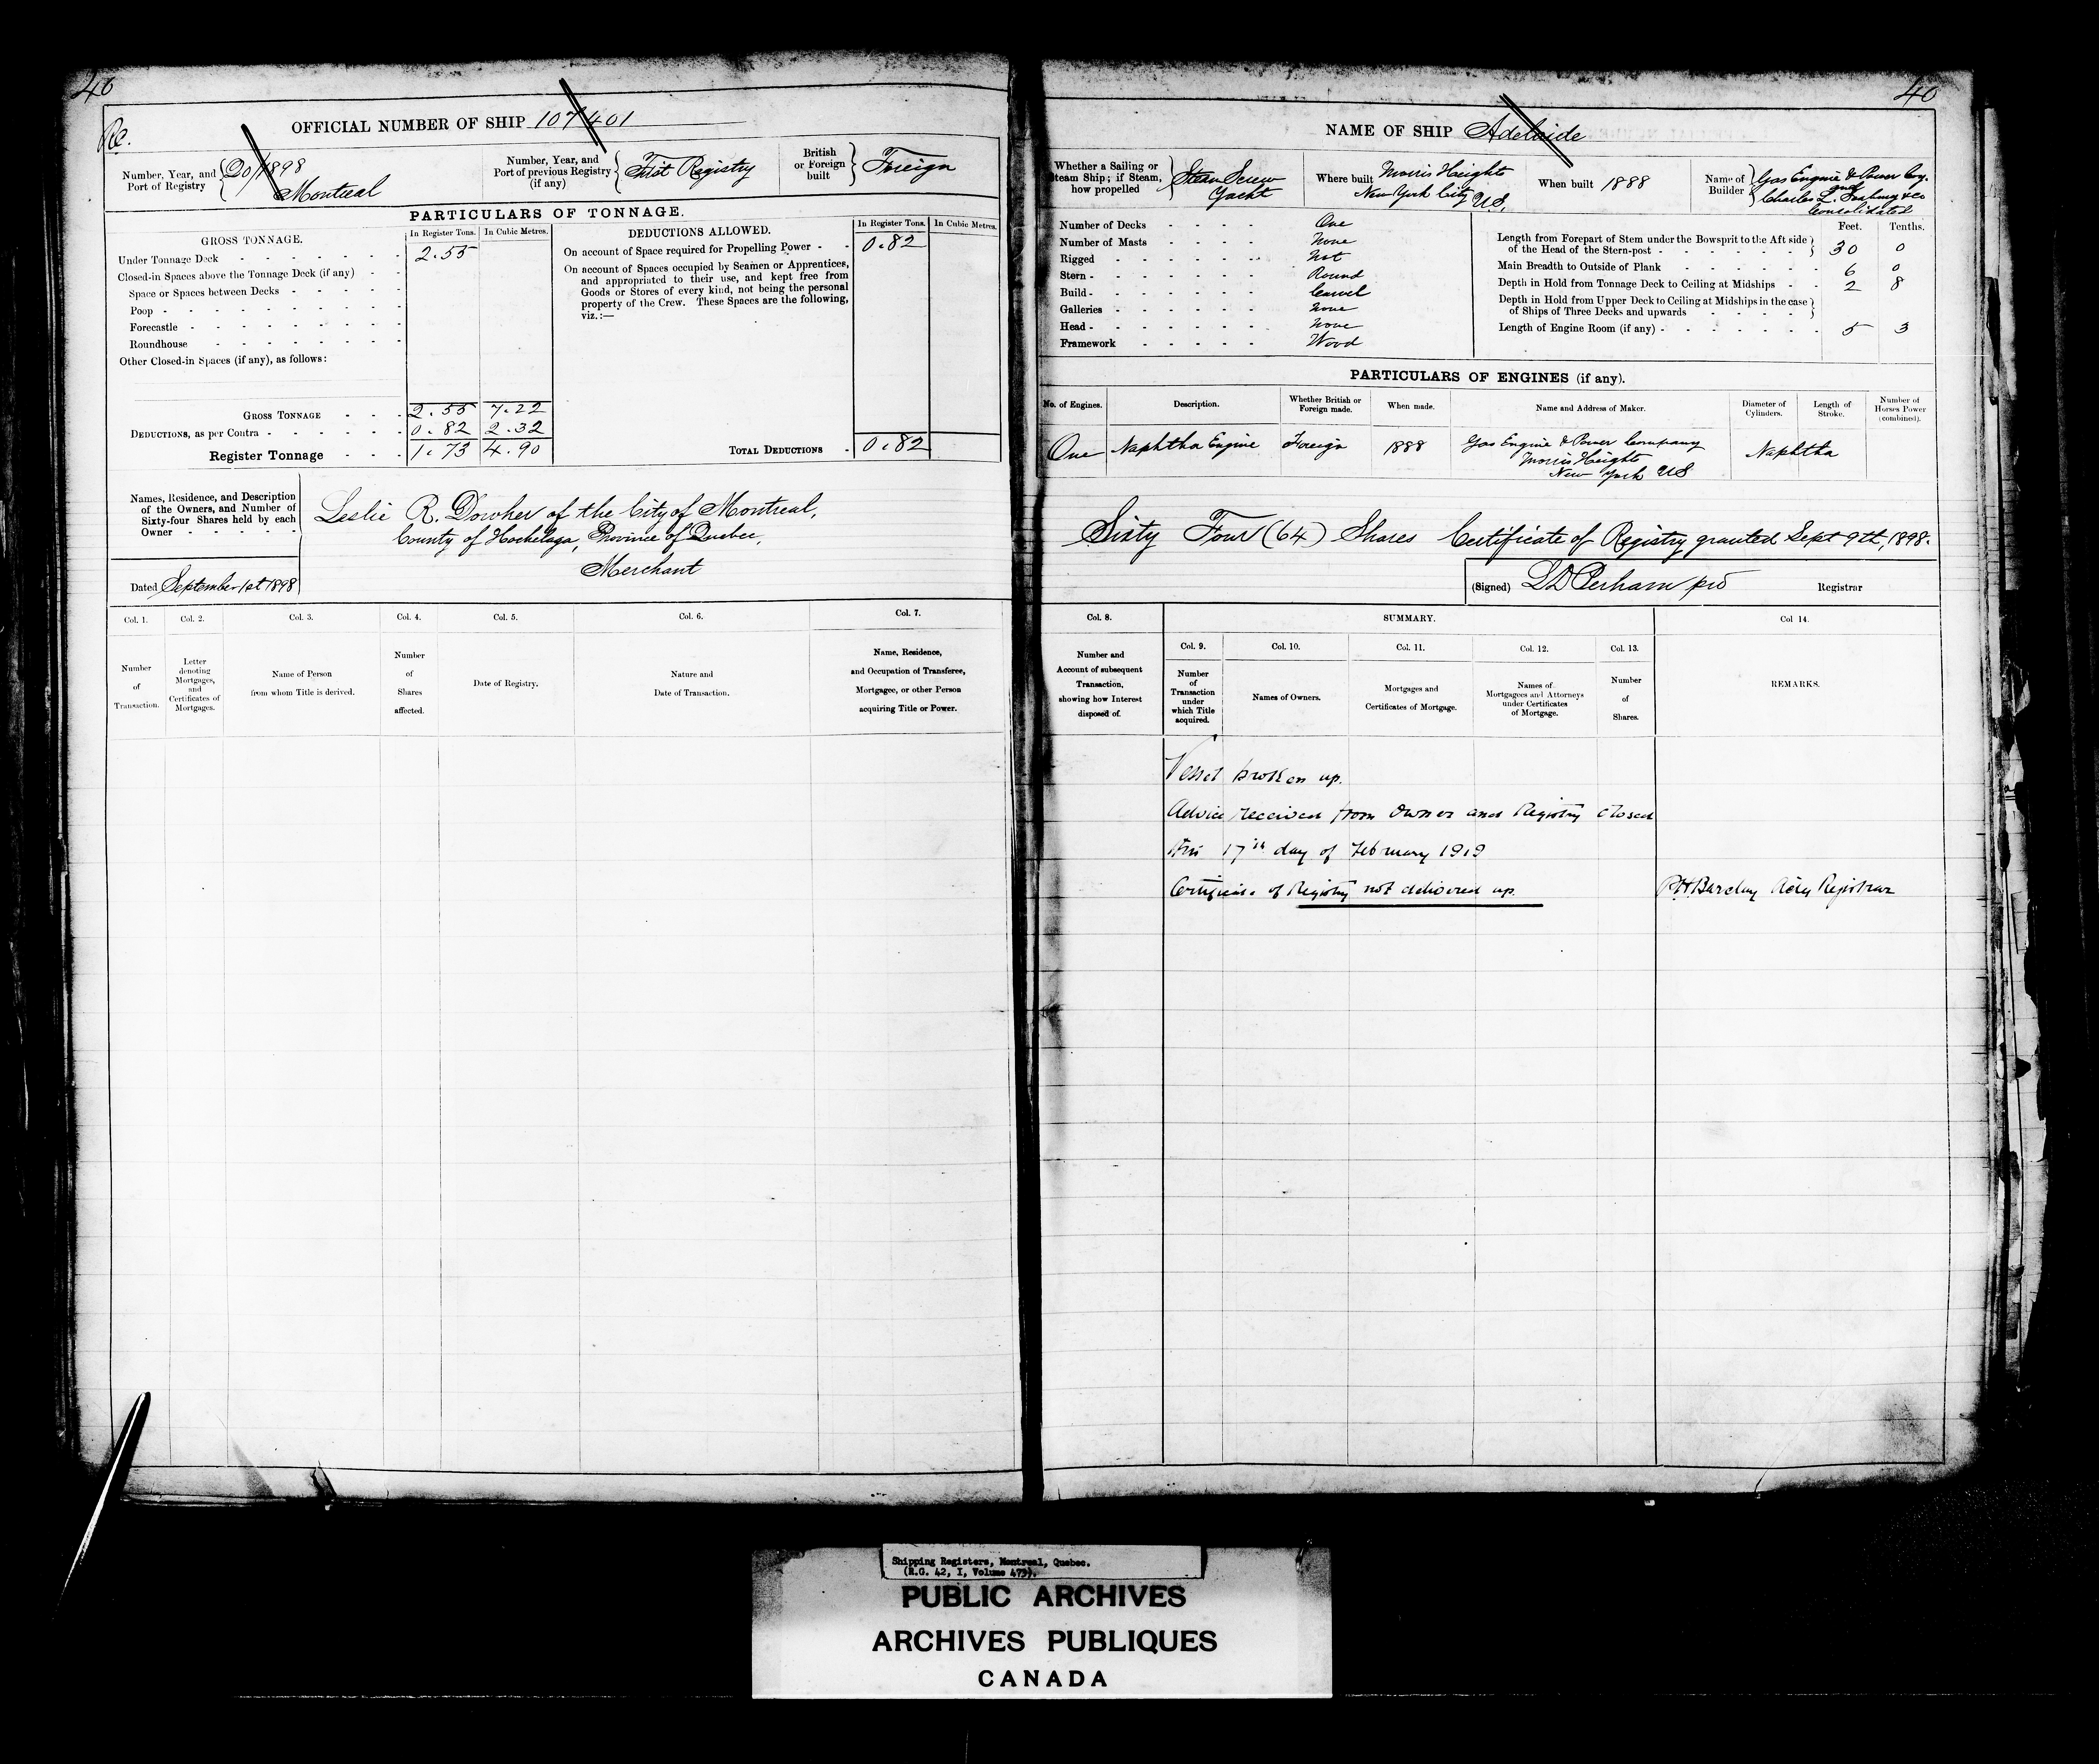 40
Re.
OFFICIAL NUMBER OF SHIP 107401
Number, Year, and Port of Registry 20/1898 Montreal
Number, Year, and Port of previous Registry (if any) First Registry
British or Foreign built Foreign
PARTICULARS OF TONNAGE.
GROSS TONNAGE.
In Register Tons. In Cubic Metres.
Under Tonnage Deck 2.55
Closed-in Spaces above the Tonnage Deck (if any)
Space or Spaces between Decks
Poop
Forecastle
Roundhouse
Other Closed-in Spaces (if any), as follows:
GROSS TONNAGE 2.55 7.22
DEDUCTIONS, as per Contra 0.82 2.32
Register Tonnage 1.73 4.90
DEDUCTIONS ALLOWED.
In Register Tons. In Cubic Metres.
On account of Space required for Propelling Power 0.82
On account of Spaces occupied by Seamen or Apprentices,
and appropriated to their use, and kept free from
Goods or Stores of every kind, not being the personal
property of the Crew. These Spaces are the following,
viz.:—
TOTAL DEDUCTIONS 0.82
Names, Residence, and Description
of the Owners, and Number of
Sixty-four Shares held by each
Owner
Leslie R. Dowker of the City of Montreal,
County of Hochelaga, Province of Quebec,
Merchant
Dated September 1st 1898
Col. 1. Col. 2. Col. 3. Col. 4. Col. 5. Col. 6. Col. 7.
Number of Transaction.
Letter denoting Mortgages, and Certificates of Mortgages.
Name of Person from whom Title is derived.
Number of Shares affected.
Date of Registry.
Nature and Date of Transaction.
Name, Residence, and Occupation of Transferee, Mortgagee, or other Person acquiring Title or Power.
40
NAME OF SHIP Adelaide
Whether a Sailing or Steam Ship; if Steam, how propelled Steam Screw Yacht
Where built Morris Heights New York City U.S.
When built 1888
Name of Builder Gas Engine & Power Coy. and Charles L. Seabury & Co Consolidated
Number of Decks One
Number of Masts None
Rigged Not
Stern Round
Build Carvel
Galleries None
Head None
Framework Wood
Feet. Tenths.
Length from Forepart of Stem under the Bowsprit to the Aft side
of the Head of the Stern-post 30 0
Main Breadth to Outside of Plank 6 0
Depth in Hold from Tonnage Deck to Ceiling at Midships 2 8
Depth in Hold from Upper Deck to Ceiling at Midships in the case
of Ships of Three Decks and upwards
Length of Engine Room (if any) 5 3
PARTICULARS OF ENGINES (if any).
No. of Engines. Description. Whether British or Foreign made. When made. Name and Address of Maker. Diameter of Cylinders. Length of Stroke. Number of Horses Power (combined).
One Naphtha Engine Foreign 1888 Gas Engine & Power Company Morris Heights New York US Naphtha
Sixty Four (64) Shares Certificate of Registry granted Sept 9th, 1898.
(Signed) LD Perham pro Registrar
Col. 8. SUMMARY. Col 14.
Col. 9. Col. 10. Col. 11. Col. 12. Col. 13.
Number and Account of subsequent Transaction, showing how Interest disposed of.
Number of Transaction under which Title acquired.
Names of Owners.
Mortgages and Certificates of Mortgage.
Names of Mortgagees and Attorneys under Certificates of Mortgage.
Number of Shares.
REMARKS.
Vessel broken up.
Advice received from Owner and Registry closed
this 17th day of February 1919
Certificate of Registry not delivered up. Barclay Actg Registrar
Shipping Registers, Montreal, Quebec.
(R.G. 42, I, Volume 473).
PUBLIC ARCHIVES
ARCHIVES PUBLIQUES
CANADA